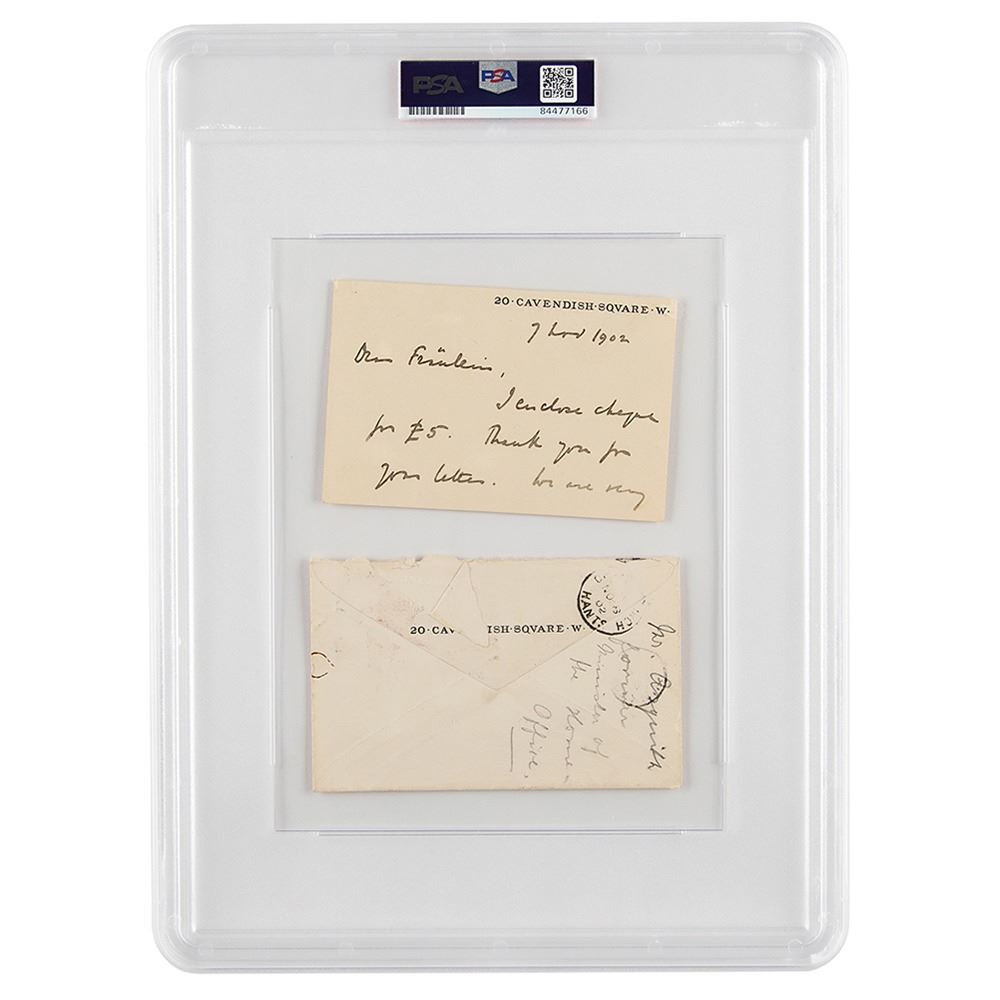 PSA
PSA
84477166
20·CAVENDISH·SQVARE·W·
7 Nov 1902
Dear Fräulein,
I enclose cheque
for £5. Thank you for
your letter. We are very
20·CAV ISH·SQVARE·W·
HANTS
NO 8
02
Mr. Asquith
former
Minister of
the Home
Office.